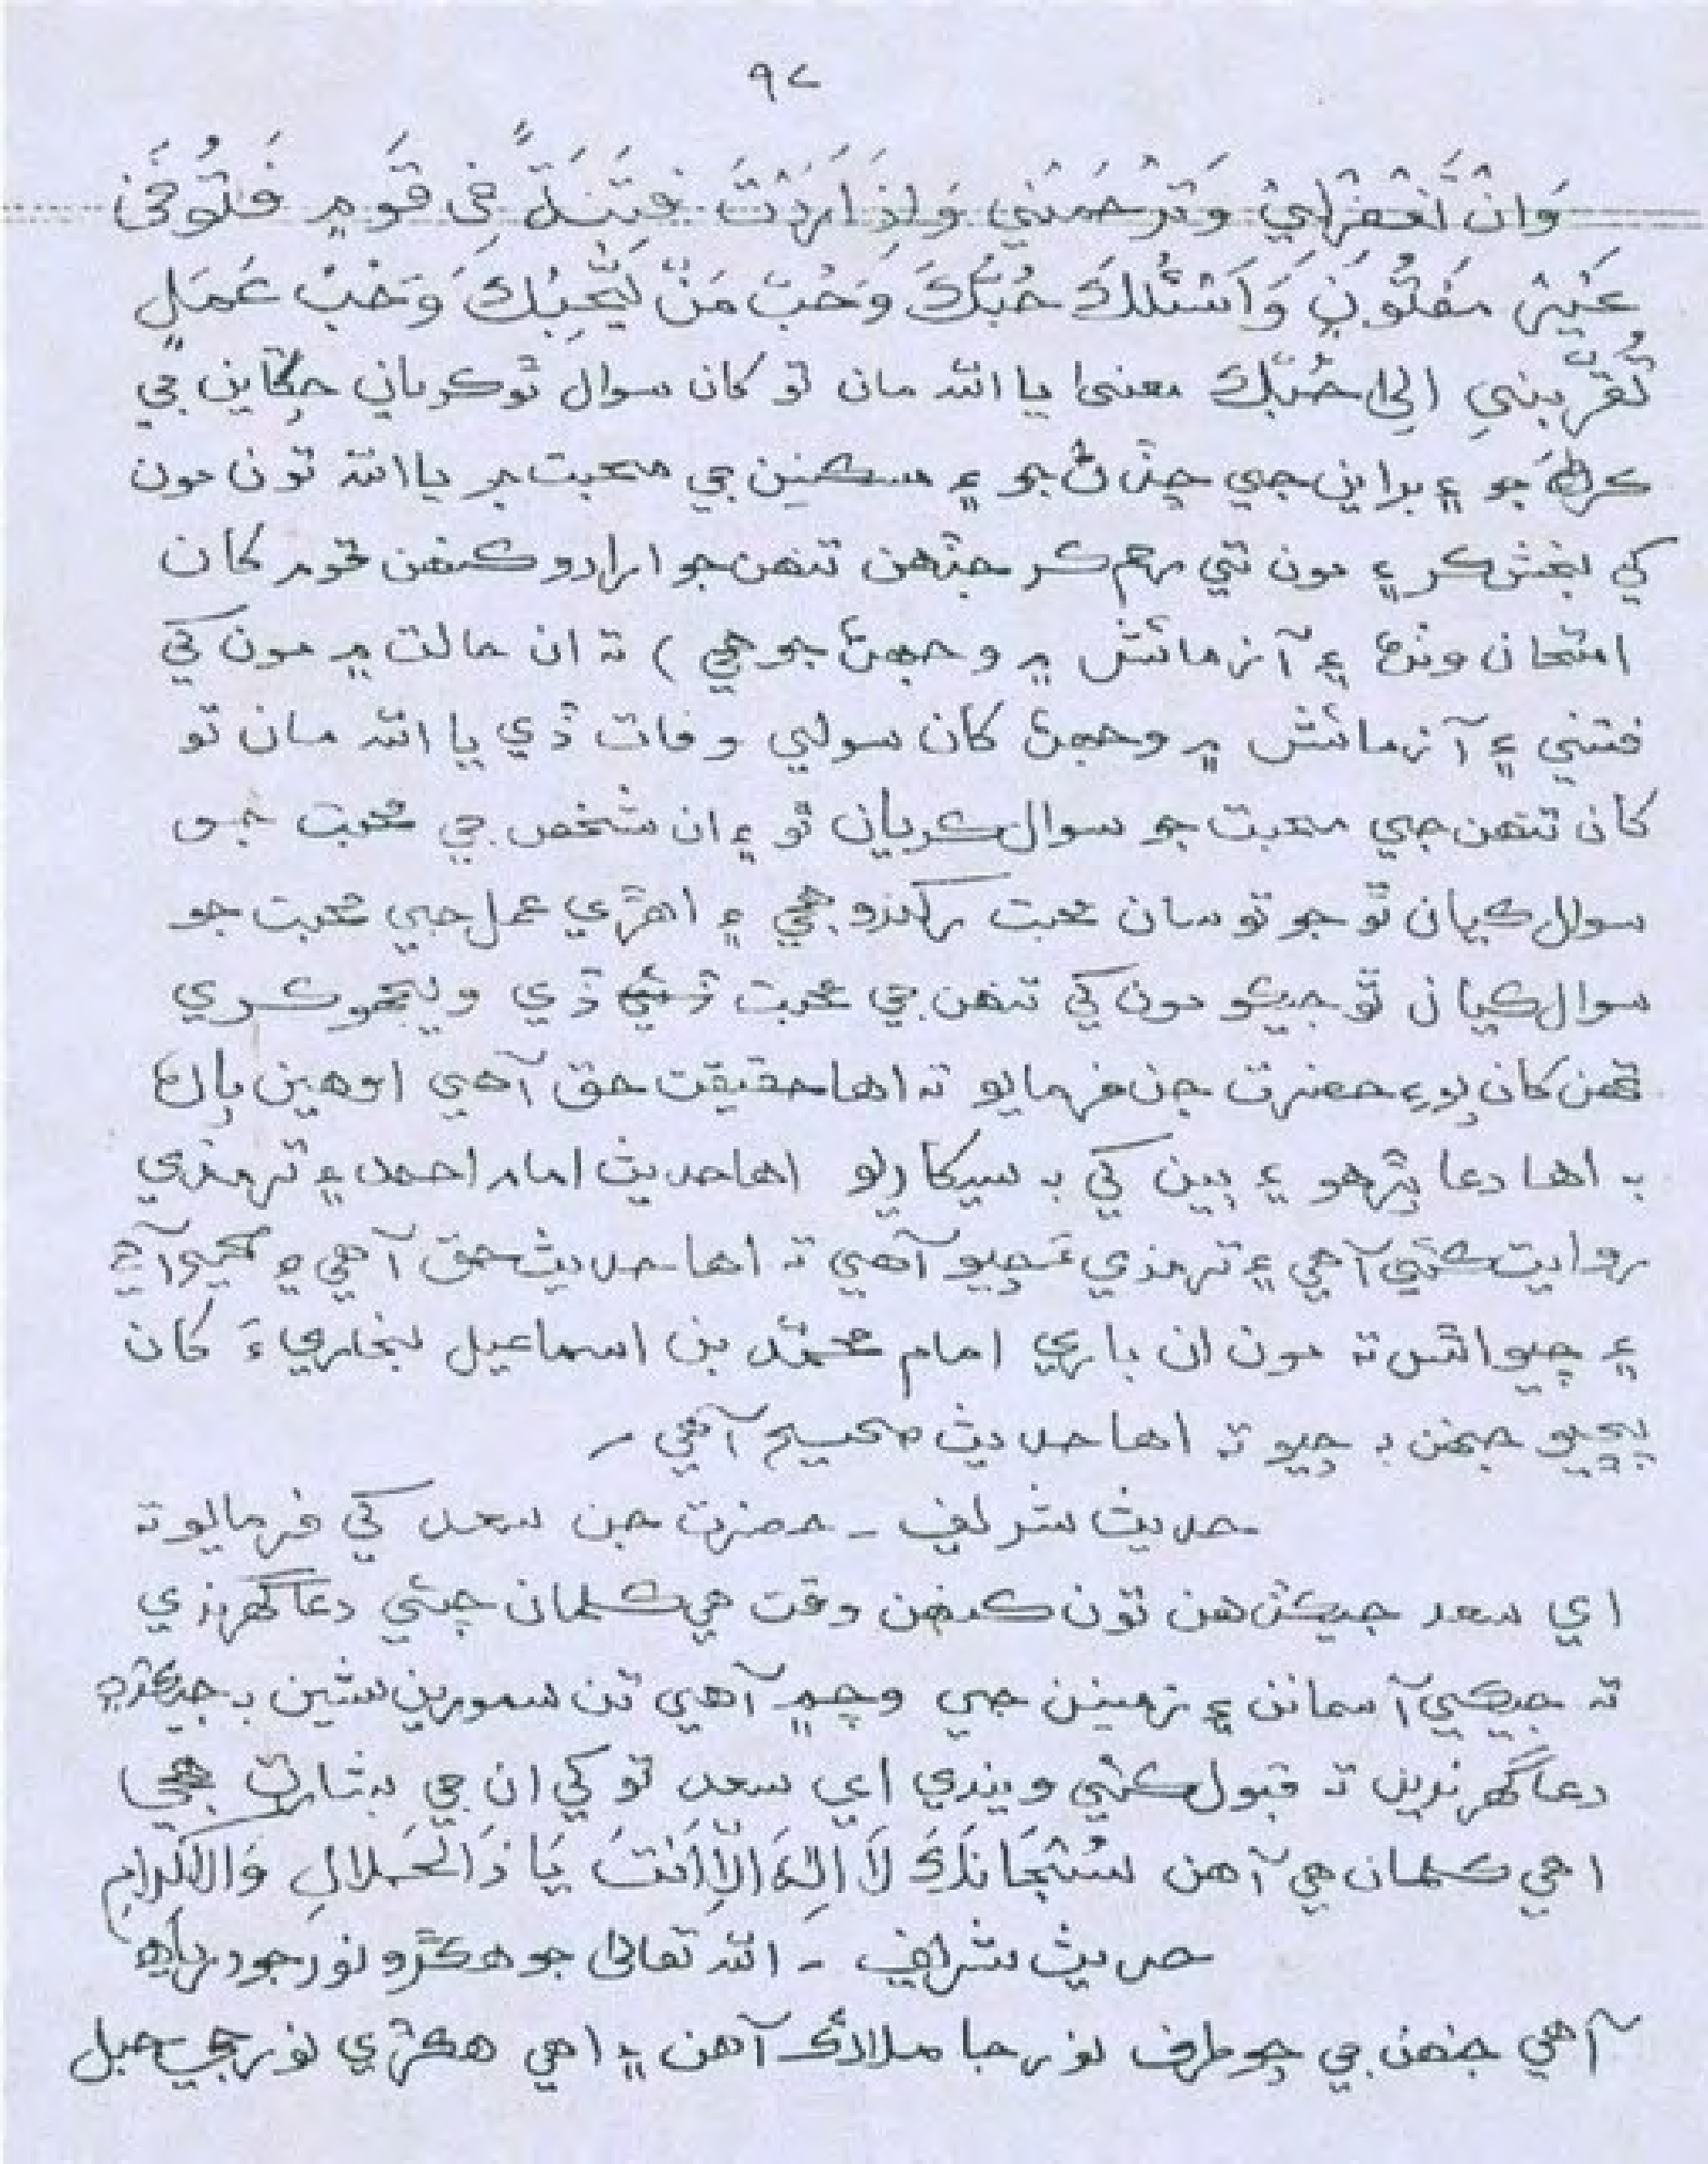 ٩٨
وَاِنْ تَغْفِرْلِيْ وَتَرْحَمْنِي وَاِذَا اَرَدْتَ فِتْنَةً فِی قَومٍ فَتَوَفَّنِی
غَيْرَ مَفْتُونٍ وَاَسْئَلُكَ حُبَّكَ وَحُبَّ مَنْ يُّحِبُّكَ وَحُبَّ عَمَلٍ
تُقَرِّبُنِي اِلیٰ حُبِّكَ معنیٰ يا الله مان تو کان سوال ٿو ڪريان چڱاين جي
ڪرڻ جو ۽ براين جي ڇڏڻ جو ۽ مسڪينن جي محبت جو يا الله تون مون
کي بخش ڪر ۽ مون تي رحم ڪر جڏهن تنهن جو ارادو ڪنهن قوم کان
امتحان وٺڻ ۽ آزمائش ۾ وجهڻ جو هجي ) ته ان حالت ۾ مون کي
فتني ۽ آزمائش ۾ وجهڻ کان سواءِ وفات ڏي يا الله مان تو
کان تنهن جي محبت جو سوال ڪريان ٿو ۽ ان شخص جي محبت جو
سوال ڪيان ٿو جو تو سان محبت رکندو هجي ۽ اهڙي عمل جي محبت جو
سوال ڪيان ٿو جيڪو مون کي تنهن جي محبت ڏي ويجهو ڪري
تهن کان پوءِ حضرت جن فرمايو ته اها حقيقت حق آهي اوهين پاڻ
به اها دعا پڙهو ۽ ٻين کي به سيکاريو اها حديث امام احمد ۽ ترمذي
روايت ڪئي آهي ۽ ترمذي چيو آهي ته اها حديث حق آهي ۽
۽ چيو اٿس ته مون ان باري امام محمّد بن اسماعيل بخاريءَ کان
پڇيو جنهن به چيو ته اها حديث صحيح آهي ۔
حديث شريف ۔ حضرت جن سعد کي فرمايو ته
اي سعد جيڪڏهن تون ڪنهن وقت هي ڪلمان چئي دعا گهرندي
ته جيڪي آسمانن ۽ زمينن جي وچ ۾ آهي تن سمورين شين به جيڪڏهن
دعا گهرندين ته قبول ڪئي ويندي اي سعد تو کي ان جي بشارت هجي
اهي ڪلمان هي آهن سُبْحَانَكَ لَا اِلٰهَ اِلَّا اَنْتَ يَا ذَالْجَلَالِ وَالْاِكْرَامِ
حديث شريف ۔ الله تعالیٰ جو هڪڙو نور جو درياهه
آهي جنهن جي چوطرف نور جا ملائڪ آهن ۽ اهي هڪڙي نور جي جبل